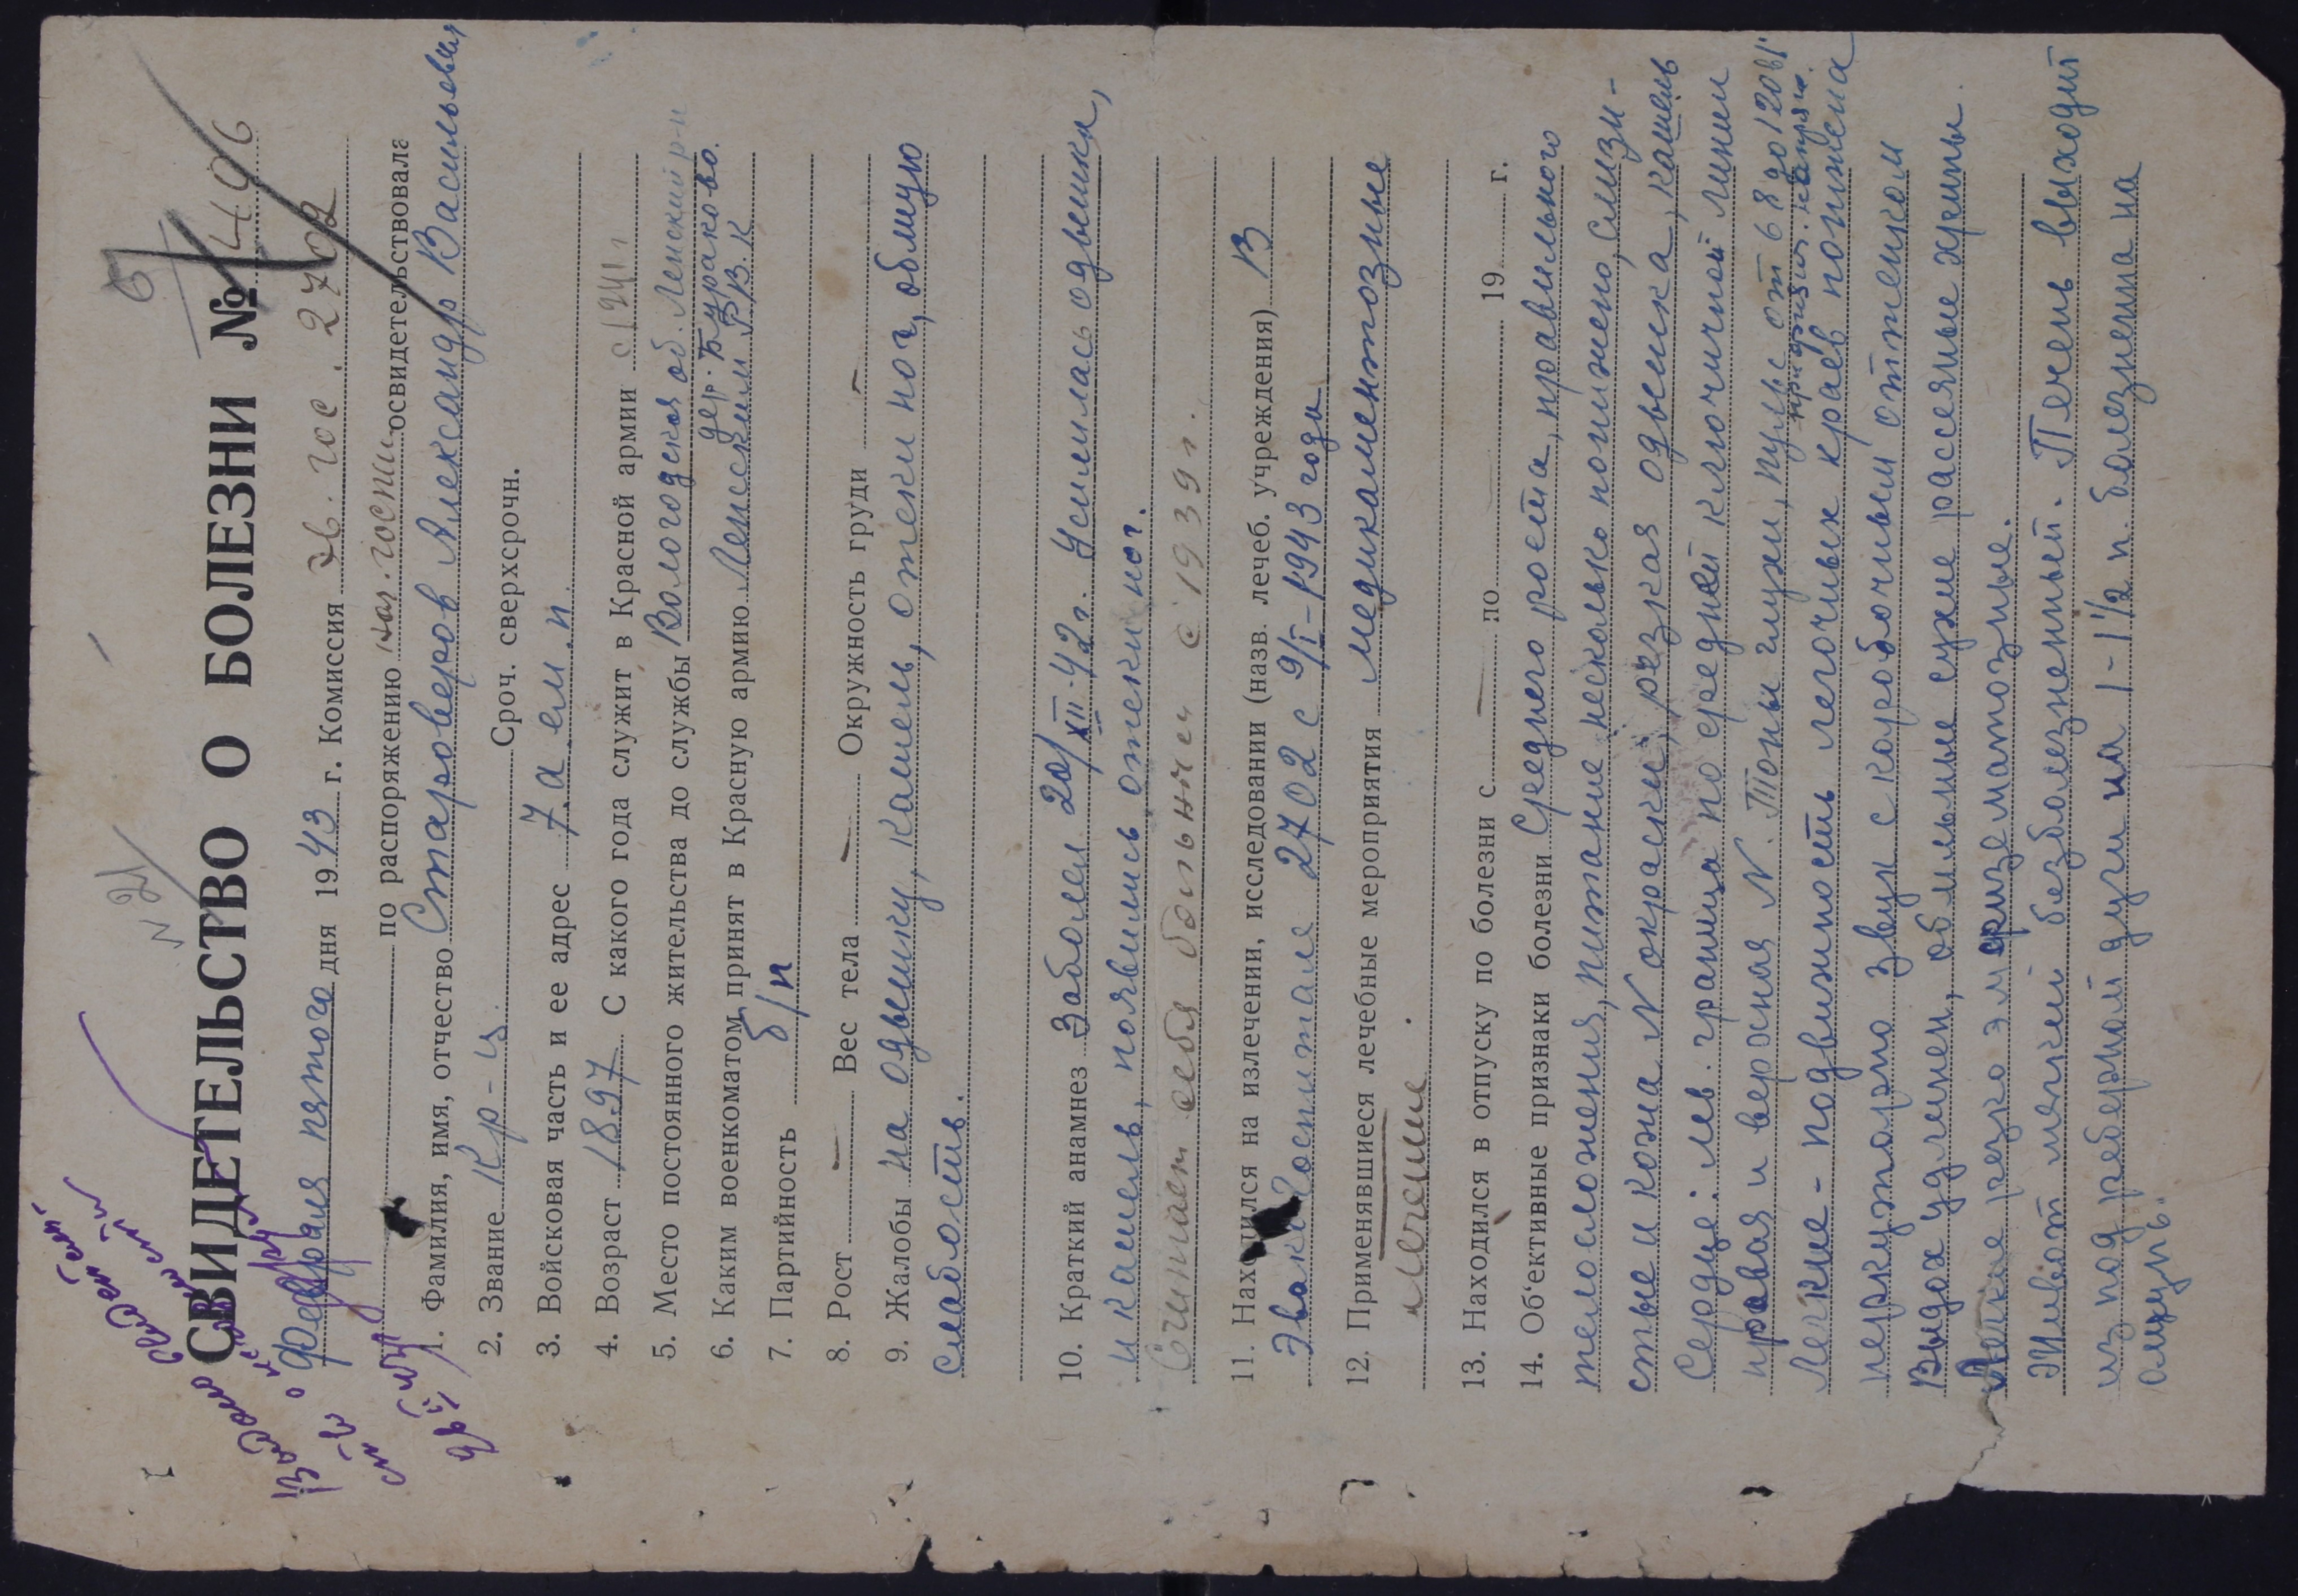 N 21
5
СВИДЕТЕЛЬСТВО О БОЛЕЗНИ № 496
Февраля пятого дня 1943 г. Комиссия эв. гос. 2702
по распоряжению нач. госпит. освидетельствовала
1. Фамилия, имя, отчество Староверов Александр Васильевич
2. Звание Кр-ц Сроч. сверхсрочн.
3. Войсковая часть и ее адрес
4. Возраст 1897 С какого года служит в Красной армии с 1941 г
5. Место постоянного жительства до службы Вологодская об. Ленский р-н
дер. Бураково.
6. Каким военкоматом принят в Красную армию Ленским Р.В.К
7. Партийность б/п
8. Рост — Вес тела — Окружность груди —
9. Жалобы на одышку, кашель, отеки ног, общую
слабость.
10. Краткий анамнез Заболел 20/XII-42 г. Усилилась одышка,
и кашель, появились отеки ног.
Считает себя больным с 1939 г.
11. Находился на излечении, исследовании (назв. лечеб. учреждения) В
Эвакогоспитале 2702 с 9/I-1943 года
12. Применявшиеся лечебные мероприятия медикаментозные
лечение.
13. Находился в отпуску по болезни с — по 19 г.
14. Об'ективные признаки болезни Среднего роста, правильного
телосложения, питание несколько понижено, слизи-
стые и кожа N окраски, резкая одышка, кашель
Сердце: лев. граница по средней ключичной линии
правая и верхняя N. Тоны глухи, пульс от 68 до 120 вт
при физич. напряж.
Легкие - подвижность легочных краев понижена
перкуторно звук с коробочным оттенком
Выдох удлинен, обильные сухие рассеяные хрипы.
Легкие резко эмфизематозные.
Живот мягкий безболезненный. Печень выходит
из под реберной дуги на 1-1½ п. болезненна на
ощупь.